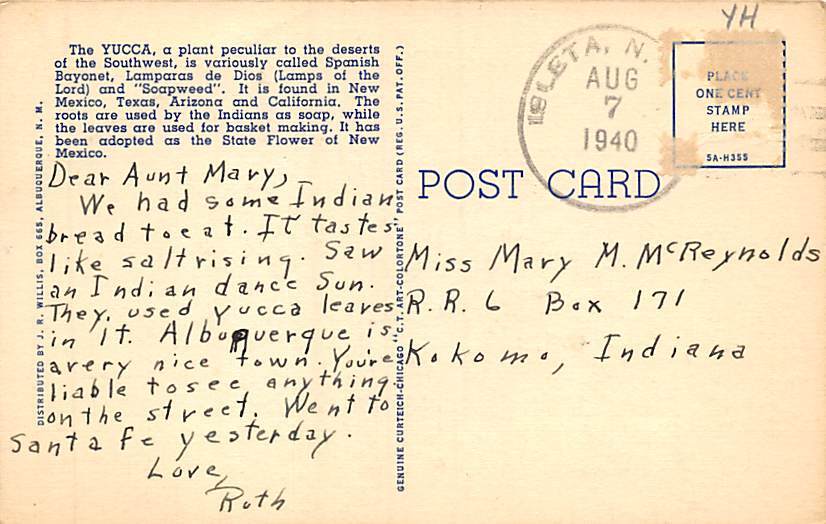 YH
The YUCCA, a plant peculiar to the deserts
of the Southwest, is variously called Spanish
Bayonet, Lamparas de Dios (Lamps of the
Lord) and "Soapweed". It is found in New
Mexico, Texas, Arizona and California. The
roots are used by the Indians as soap, while
the leaves are used for basket making. It has
been adopted as the State Flower of New
Mexico.
DISTRIBUTED BY J. R. WILLIS, BOX 665, ALBUQUERQUE, N. M.
Dear Aunt Mary,
We had some Indian
bread to eat. It tastes
like salt rising. Saw
an Indian dance Sun.
They used yucca leaves
in it. Albuquerque is
a very nice town. You're
liable to see anything
on the street. Went to
Santa Fe yesterday.
Love,
Ruth
GENUINE CURTEICH-CHICAGO "C.T. ART-COLORTONE" POST CARD (REG. U.S. PAT. OFF.)
ISLETA, N.
AUG
7
1940
PLACE
ONE CENT
STAMP
HERE
5A-H355
POST CARD
Miss Mary M. McReynolds
R.R. 6 Box 171
Kokomo, Indiana